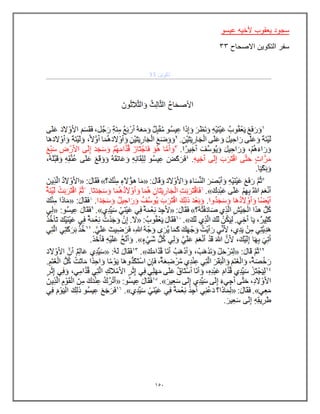 سجود يعقوب لأخيه عيسو
سفر التكوين الاصحاح ٣٣
تكوين 33
الأصحَاحُ الثَّالِثُ وَالثَّلاَثُونَ
١وَرَفَعَ يَعْقُوبُ عَيْنَيْهِ وَنَظَرَ وَإِذَا عِيسُو مُقْبِلٌ وَمَعَهُ أَرْبَعُ مِئَةِ رَجُل، فَقَسَمَ الأَوْلاَدَ عَلَى
لَيْئَةَ وَعَلَى رَاحِيلَ وَعَلَى الْجَارِيَتَيْنِ. ٢وَوَضَعَ الْجَارِيَتَيْنِ وَأَوْلاَدَهُمَا أَوَّلاً، وَلَيْئَةَ وَأَوْلاَدَهَا
وَرَاءَهُمْ، وَرَاحِيلَ وَيُوسُفَ أَخِيرًا. ٣وَأَمَّا هُوَ فَاجْتَازَ قُدَّامَهُمْ وَسَجَدَ إِلَى الأَرْضِ سَبْعَ
مَرَّاتٍ حَتَّى اقْتَرَبَ إِلَى أَخِيهِ. ٤فَرَكَضَ عِيسُو لِلِقَائِهِ وَعَانَقَهُ وَوَقَعَ عَلَى عُنُقِهِ وَقَبَّلَهُ،
وَبَكَيَا.
٥ثُمَّ رَفَعَ عَيْنَيْهِ وَأَبْصَرَ النِّسَاءَ وَالأَوْلاَدَ وَقَالَ: «مَا هؤُلاَءِ مِنْكَ؟» فَقَالَ: «الأَوْلاَدُ الَّذِينَ
أَنْعَمَ اللهُ بِهِمْ عَلَى عَبْدِكَ». ٦فَاقْتَرَبَتِ الْجَارِيَتَانِ هُمَا وَأَوْلاَدُهُمَا وَسَجَدَتَا. ٧ثُمَّ اقْتَرَبَتْ لَيْئَةُ
أَيْضًا وَأَوْلاَدُهَا وَسَجَدُوا. وَبَعْدَ ذلِكَ اقْتَرَبَ يُوسُفُ وَرَاحِيلُ وَسَجَدَا. ٨فَقَالَ: «مَاذَا مِنْكَ
كُلُّ هذَا الْجَيْشِ الَّذِي صَادَفْتُهُ؟» فَقَالَ: «لأَجِدَ نِعْمَةً فِي عَيْنَيْ سَيِّدِي». ٩فَقَالَ عِيسُو: «لِي
كَثِيرٌ، يَا أَخِي. لِيَكُنْ لَكَ الَّذِي لَكَ». ١٠فَقَالَ يَعْقُوبُ: «لاَ. إِنْ وَجَدْتُ نِعْمَةً فِي عَيْنَيْكَ تَأْخُذْ
هَدِيَّتِي مِنْ يَدِي، لأَنِّي رَأَيْتُ وَجْهَكَ كَمَا يُرَى وَجْهُ اللهِ، فَرَضِيتَ عَلَيَّ. ١١خُذْ بَرَكَتِي الَّتِي
أُتِيَ بِهَا إِلَيْكَ، لأَنَّ اللهَ قَدْ أَنْعَمَ عَلَيَّ وَلِي كُلُّ شَيْءٍ». وَأَلَحَّ عَلَيْهِ فَأَخَذَ.
١٢ثُمَّ قَالَ: «لِنَرْحَلْ وَنَذْهَبْ، وَأَذْهَبُ أَنَا قُدَّامَكَ». ١٣فَقَالَ لَهُ: «سَيِّدِي عَالِمٌ أَنَّ الأَوْلاَدَ
رَخْصَةٌ، وَالْغَنَمَ وَالْبَقَرَ الَّتِي عِنْدِي مُرْضِعَةٌ، فَإِنِ اسْتَكَدُّوهَا يَوْمًا وَاحِدًا مَاتَتْ كُلُّ الْغَنَمِ.
١٤لِيَجْتَزْ سَيِّدِي قُدَّامَ عَبْدِهِ، وَأَنَا أَسْتَاقُ عَلَى مَهَلِي فِي إِثْرِ الأَمْلاَكِ الَّتِي قُدَّامِي، وَفِي إِثْرِ
الأَوْلاَدِ، حَتَّى أَجِيءَ إِلَى سَيِّدِي إِلَى سَعِيرَ». ١٥فَقَالَ عِيسُو: «أَتْرُكُ عِنْدَكَ مِنَ الْقَوْمِ الَّذِينَ
مَعِي». فَقَالَ: «لِمَاذَا؟ دَعْنِي أَجِدْ نِعْمَةً فِي عَيْنَيْ سَيِّدِي». ١٦فَرَجَعَ عِيسُو ذلِكَ الْيَوْمَ فِي
طَرِيقِهِ إِلَى سَعِيرَ.
١٥٠